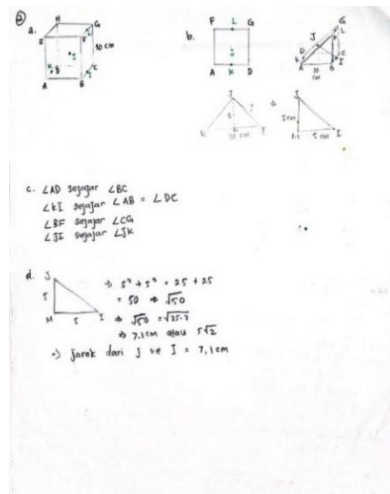 2
a.
H
G
E
F
10 cm
D
C
A
B
b.
F L G
A K D
G
L
J
D
C
K
A
B
I
10 cm
J
5
I
J
5 cm
M 5 cm I
c. ∠AD sejajar ∠BC
∠KI sejajar ∠AB = ∠DC
∠BF sejajar ∠CG
∠JI sejajar ∠JK
d.
J
5
M 5 I
⇒ 5² + 5² = 25 + 25
= 50 ⇒ √50
⇒ √50 = √25.2
⇒ 7,1 cm atau 5√2
⇒ Jarak dari J ke I = 7,1 cm